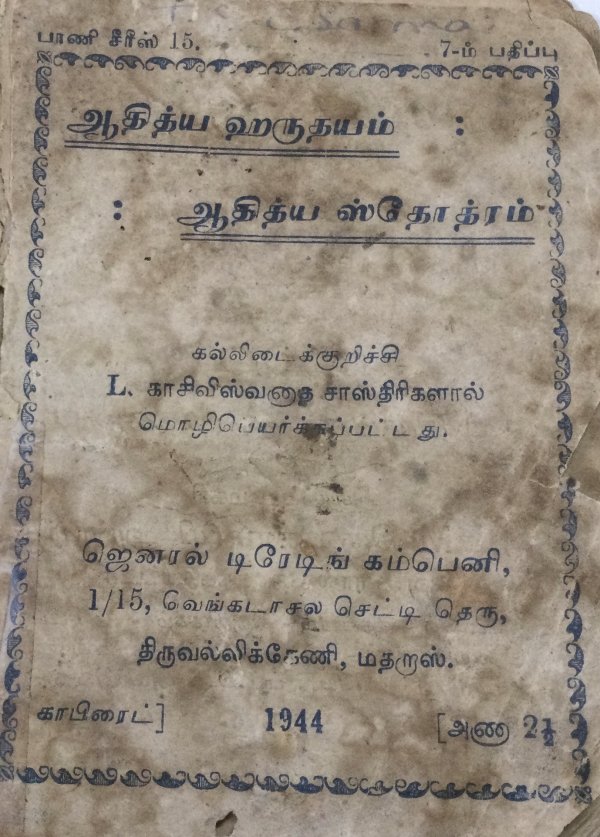 பாணி சீரீஸ் 15. 7-ம் பதிப்பு
ஆதித்ய ஹருதயம் :
: ஆதித்ய ஸ்தோத்ரம்
கல்லிடைக்குறிச்சி
L. காசிவிஸ்வனாத சாஸ்திரிகளால்
மொழிபெயர்க்கப்பட்டது.
ஜெனரல் டிரேடிங் கம்பெனி,
1/15, வேங்கடாசல செட்டி தெரு,
திருவல்லிக்கேணி, மதறாஸ்.
காபிரைட்] 1944 [அணா 2½